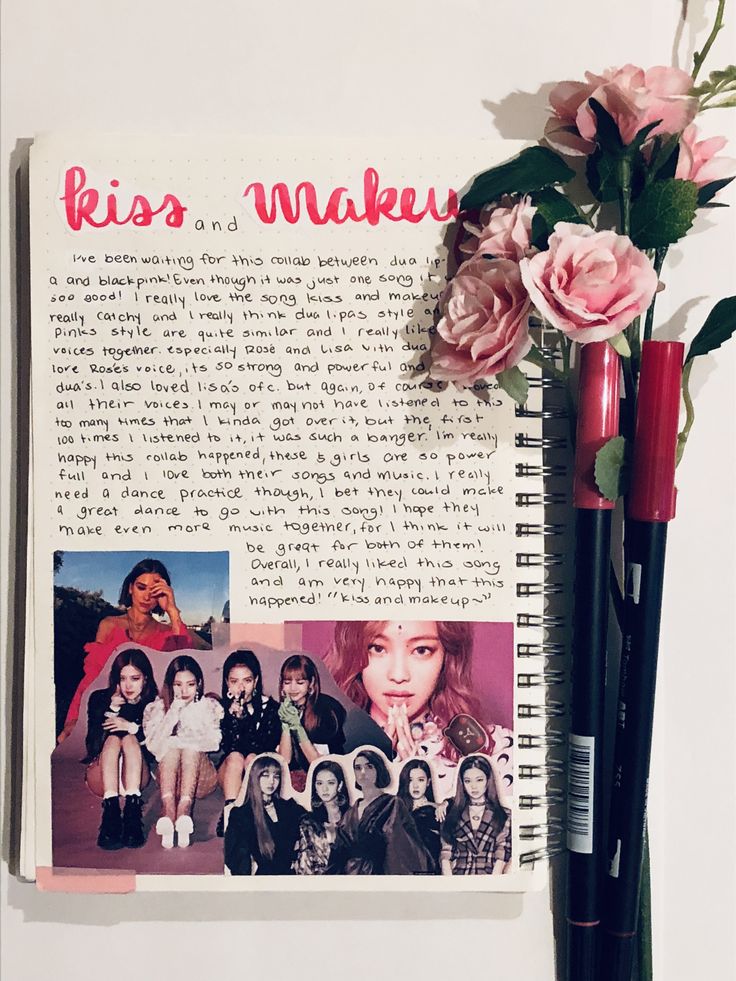 kiss and makeu
I've been waiting for this collab between dua lip-
a and blackpink! Even though it was just one song it
soo good! I really love the song kiss and makeu
really catchy and I really think dua lipas style an
Pinks style are quite similar and I really like
voices together. especially Rosé and Lisa with dua
love Rosé's voice, its so strong and powerful and
dua's. I also loved lisa's ofc. but again, of course loved
all their voices. I may or may not have listened to this
too many times that I kinda got over it, but the first
100 times I listened to it, it was such a banger. I'm really
happy this collab happened, these 5 girls are so power
full and I love both their songs and music. I really
need a dance practice though, I bet they could make
a great dance to go with this song! I hope they
make even more music together, for I think it will
be great for both of them!
Overall, I really liked this song
and am very happy that this
happened! "kiss and makeup~"
Tombow ABT
755